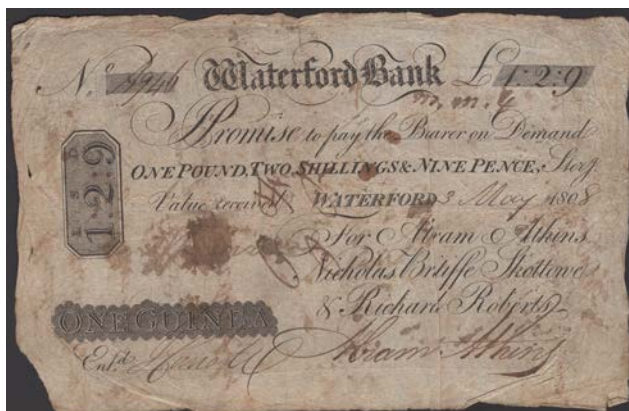 No. Waterford Bank £1:2:9
m.m.4
I Promise to pay the Bearer on Demand
ONE POUND, TWO SHILLINGS & NINE PENCE, Sterg
Value received WATERFORD 3 May 1808
L S D
1:2:9
For Abram Atkins
Nicholas Skottowe
& Richard Roberts
ONE GUINEA
Entd.
Abram Atkins